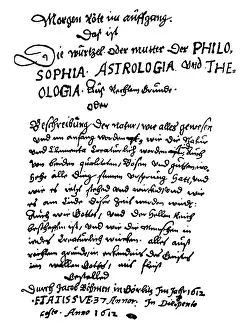 Morgen Röte im auffgang.
Das ist
Die wurtzel oder mutter der PHILO,
SOPHIA. ASTROLOGIA. und THE-
OLOGIA. Auß rechtem Grunde.
oder
Beschreibung der natur, wie alles gewesen
und im anfang worden ist, wie die Natur
und Elementa Creatürlich worden seind, auch
von beiden qualiteten, Bösen und gutten, wo
her alle ding seinen ursprung hat, und
wie es itzt stehed und wircked, und wie
es am Ende dieser Zeit werden wird.
Auch wie Gottes, und der Hellen Reich
beschaffen ist, und wie die Menschen in
jedes Creatürlich wircken. alles auß
rechtem grunde, in erkendnis des Geistes
im wallen Gottes, mit fleis
gestelled
Durch Jacob Böhmen in Görlitz Im Jahr 1612
ÆTATIS SVÆ 37 Annor. In Die Pente
coste. Anno 1612